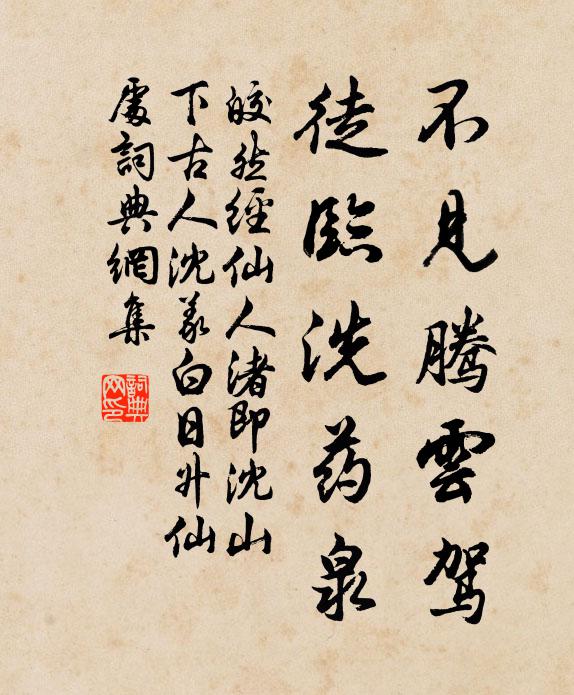 不見騰雲駕
徒臨洗药泉
皎然經仙人渚即沈山
下古人沈羲白日升仙
處詞典網集
詞典網印